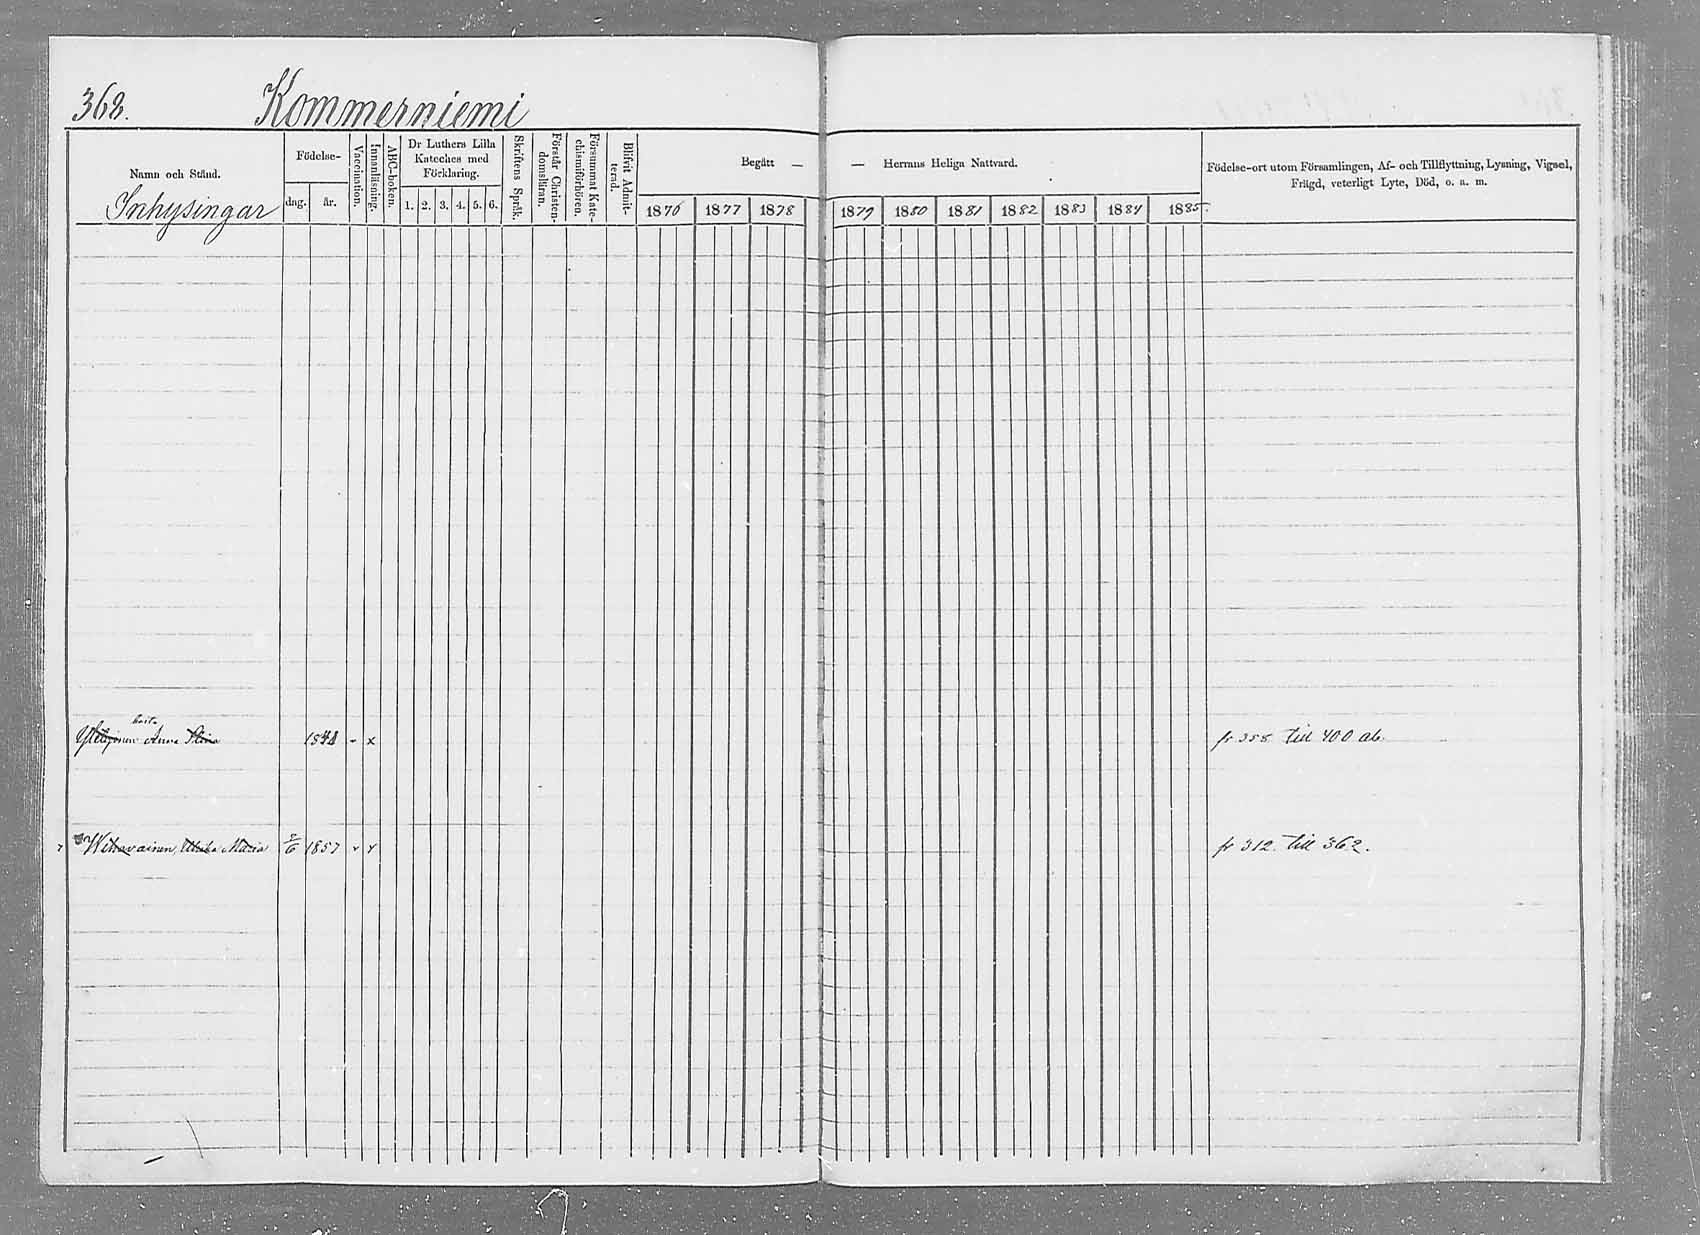 368. Kommerniemi
Namn och Stånd.
Inhysingar
Födelse-
dag. år.
Vaccination.
Innanläsning.
ABC-boken.
Dr Luthers Lilla
Kateches med
Förklaring.
1. 2. 3. 4. 5. 6.
Skriftens Språk.
Förstår Christen-
domsläran.
Försummat Kate-
chismiförhören.
Blifvit Admit-
terad.
Begått — — Herrans Heliga Nattvard.
1876 1877 1878 1879 1880 1881 1882 1883 1884 1885.
Födelse-ort utom Församlingen, Af- och Tillflyttning, Lysning, Vigsel,
Frägd, veterligt Lyte, Död, o. a. m.
Anna Stina fr 358 till 400 ab.
Wihavainen, Ulrika Maria 2/6 1857 fr 312. till 362.